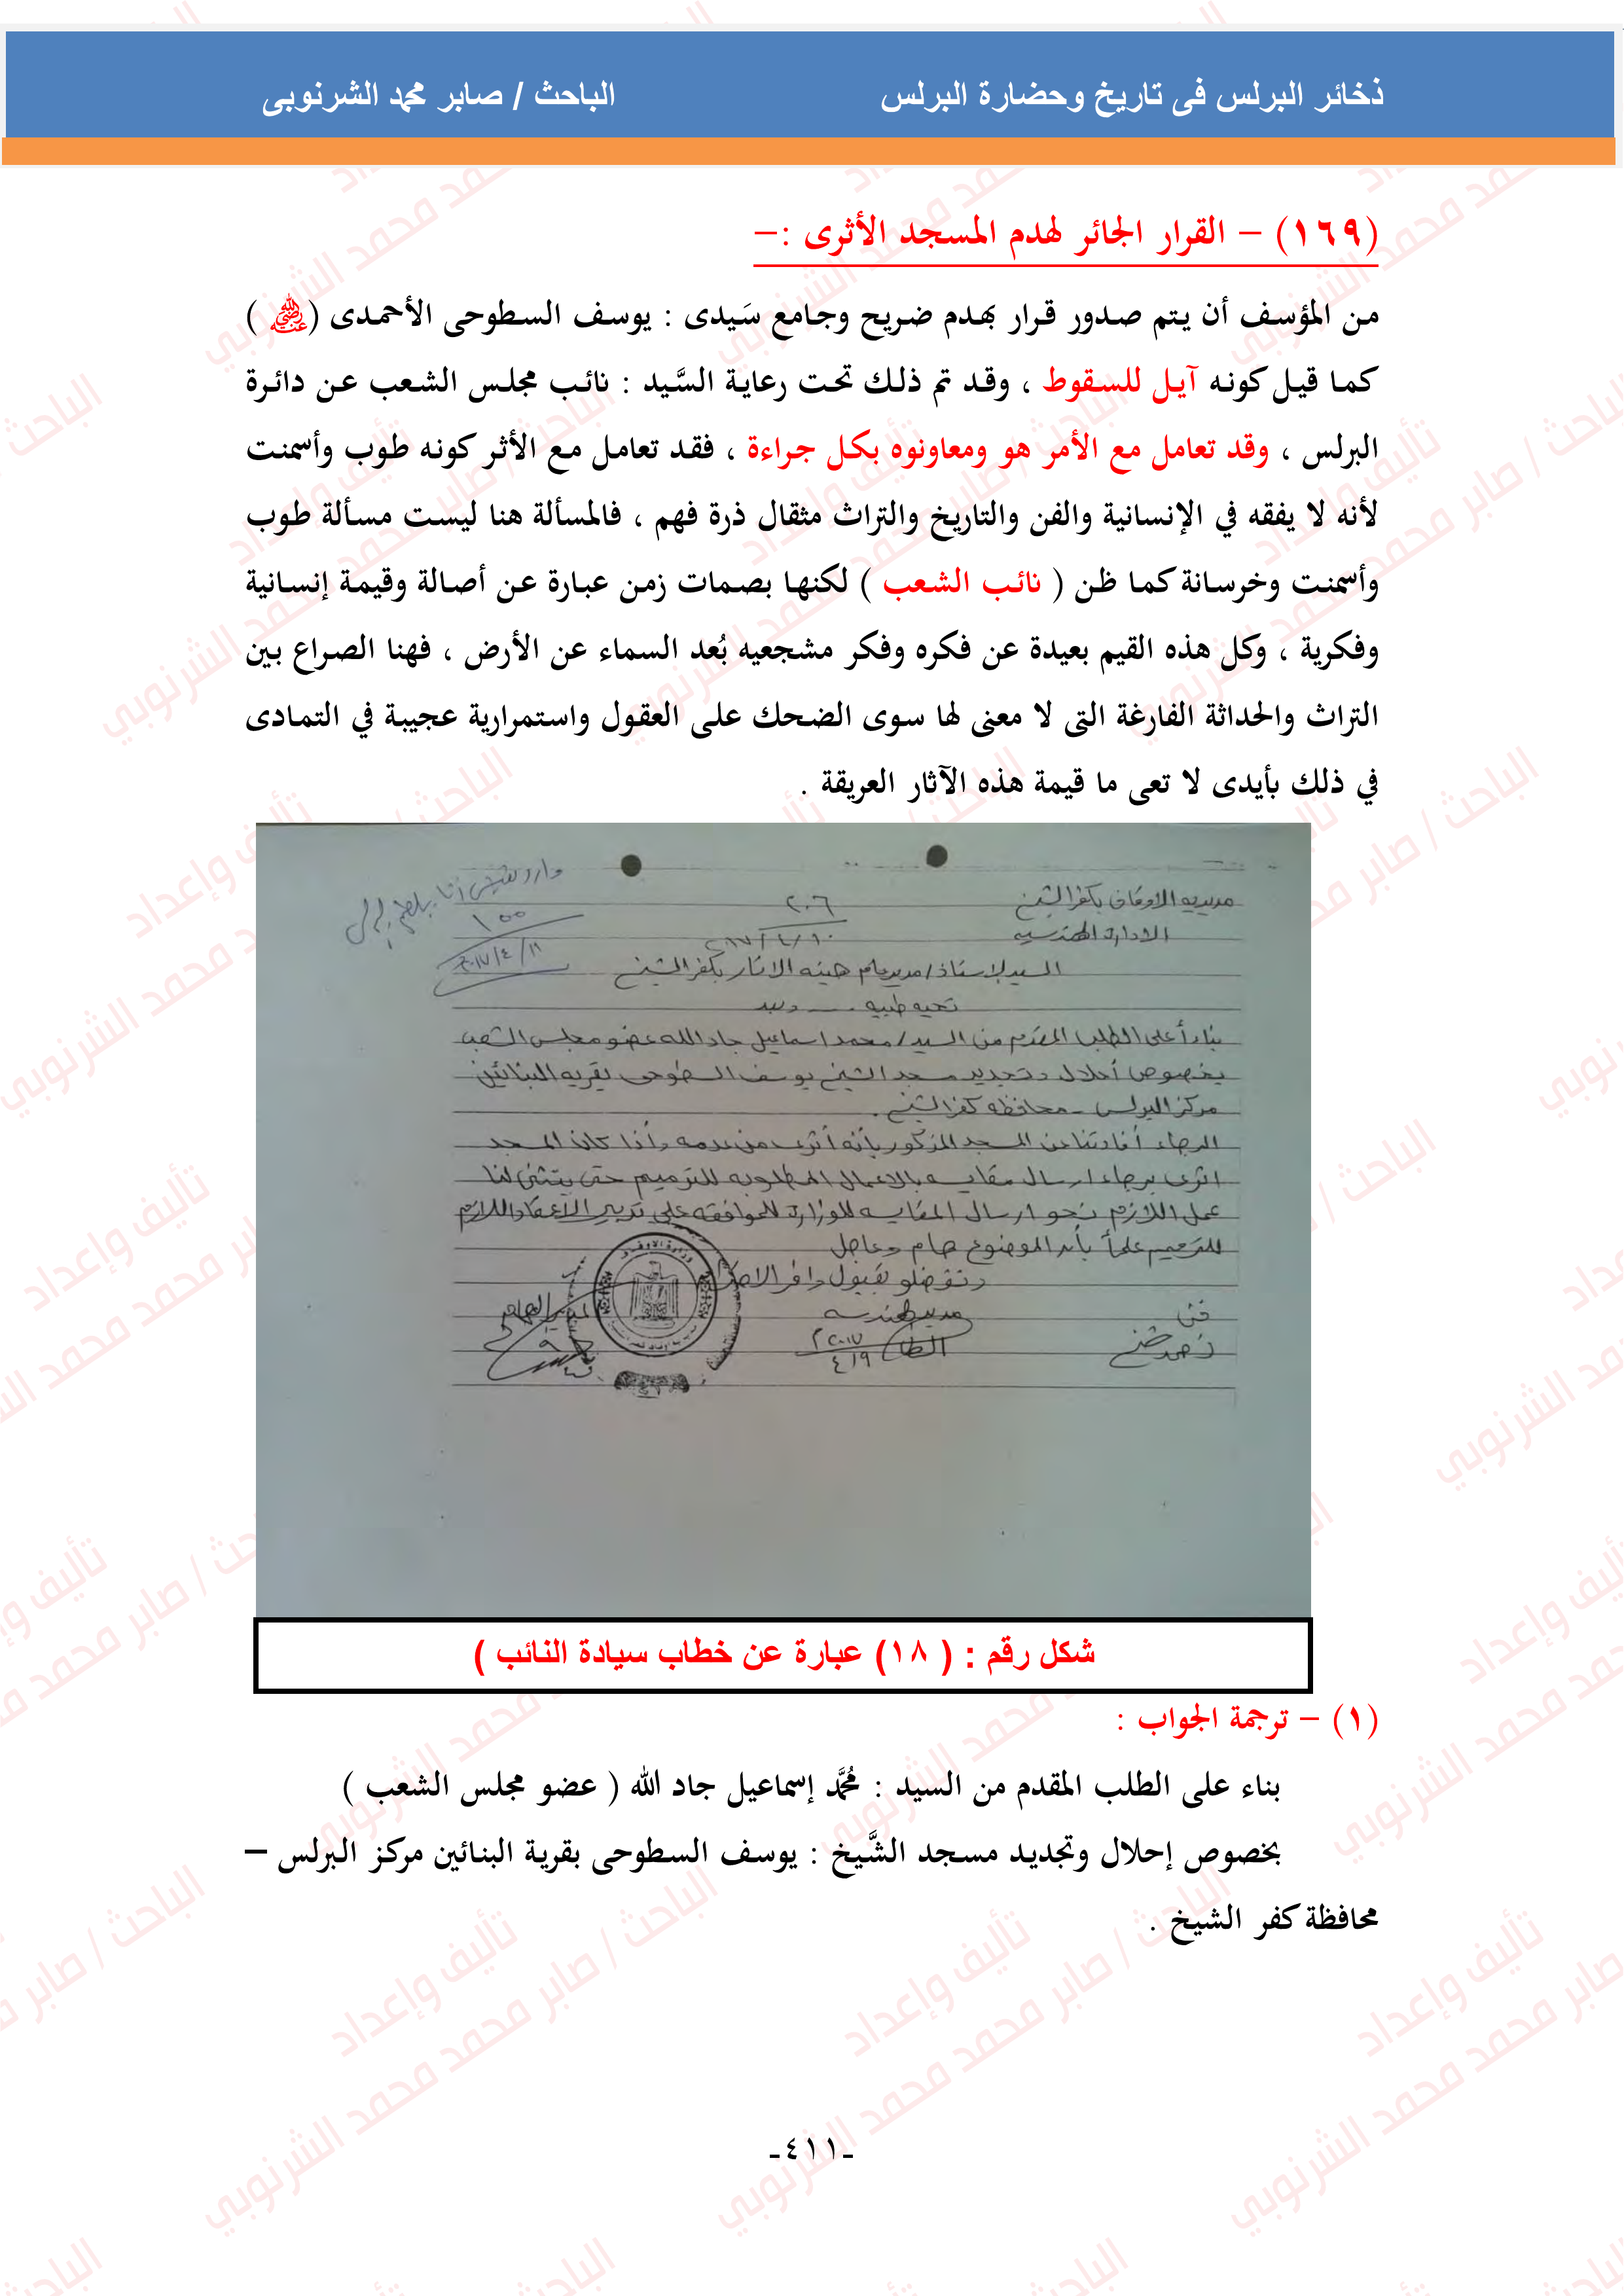 ذخائر البرلس فى تاريخ وحضارة البرلس الباحث / صابر محمد الشرنوبى
(١٦٩) – القرار الجائر لهدم المسجد الأثرى :-
من المؤسف أن يتم صدور قرار بهدم ضريح وجامع سَيدى : يوسف السطوحى الأحمدى (رضي الله عنه)
كما قيل كونه آيل للسقوط ، وقد تم ذلك تحت رعاية السَّيد : نائب مجلس الشعب عن دائرة
البرلس ، وقد تعامل مع الأمر هو ومعاونوه بكل جراءة ، فقد تعامل مع الأثر كونه طوب وأسمنت
لأنه لا يفقه في الإنسانية والفن والتاريخ والتراث مثقال ذرة فهم ، فالمسألة هنا ليست مسألة طوب
وأسمنت وخرسانة كما ظن ( نائب الشعب ) لكنها بصمات زمن عبارة عن أصالة وقيمة إنسانية
وفكرية ، وكل هذه القيم بعيدة عن فكره وفكر مشجعيه بُعد السماء عن الأرض ، فهنا الصراع بين
التراث والحداثة الفارغة التى لا معنى لها سوى الضحك على العقول واستمرارية عجيبة في التمادى
في ذلك بأيدى لا تعى ما قيمة هذه الآثار العريقة .
مديريه الاوقاف بكفر الشيخ
الادارة الهندسيه
٢٠٦
١٠٠
السيد الاستاذ / مدير عام هيئه الاثار بكفر الشيخ
تحيه طيبه .... وبعد
بناءاً على الطلب المقدم من السيد / محمد اسماعيل جاد الله عضو مجلس الشعب
بخصوص أحلال وتجديد مسجد الشيخ يوسف السطوحى بقريه البنائين
مركز البرلس - محافظه كفر الشيخ .
الرجاء أفادتنا عن المسجد المذكور بأنه أثرى من عدمه وأذا كان المسجد
اثرى برجاء ارسال مقايسه بالاعمال المطلوبه للترميم حتى يتثنى لنا
عمل اللازم نحو ارسال المقايسه للوزارة للموافقه على تدبير الاعتماد اللازم
للترميم علماً بأن الموضوع هام وعاجل
وتفضلو بقبول وافر الاحترام
فنى
مدير الهندسه
المدير العام
شكل رقم : ( ١٨) عبارة عن خطاب سيادة النائب )
(١) – ترجمة الجواب :
بناء على الطلب المقدم من السيد : مُحَمَّد إسماعيل جاد الله ( عضو مجلس الشعب )
بخصوص إحلال وتجديد مسجد الشَّيخ : يوسف السطوحى بقرية البنائين مركز البرلس –
محافظة كفر الشيخ .
-٤١١-